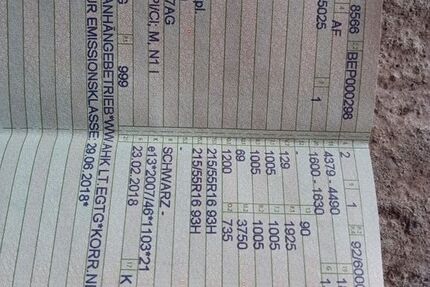 8566 BEP000286 2 1 92/6000
AF 4379 - 4490
5025 1 1600 - 1630
- 90
129 1925
1005 1005
1005 1005
69 3750
1200 735
215/55R16 93H
215/55R16 93H
pl. -
7AG
PI/CI, M, N1 I SCHWARZ -
e13*2007/46*1103*21
G 999 23.02.2018 K
ANHÄNGEBETRIEB*WW.AHK LT.EGTG*KORR.NR
ÜR EMISSIONSKLASSE 29.06.2018*